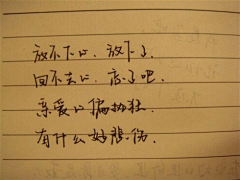 放不下的，放下了．
回不去的，忘了吧．
亲爱的偏执狂．
有什么好悲伤．